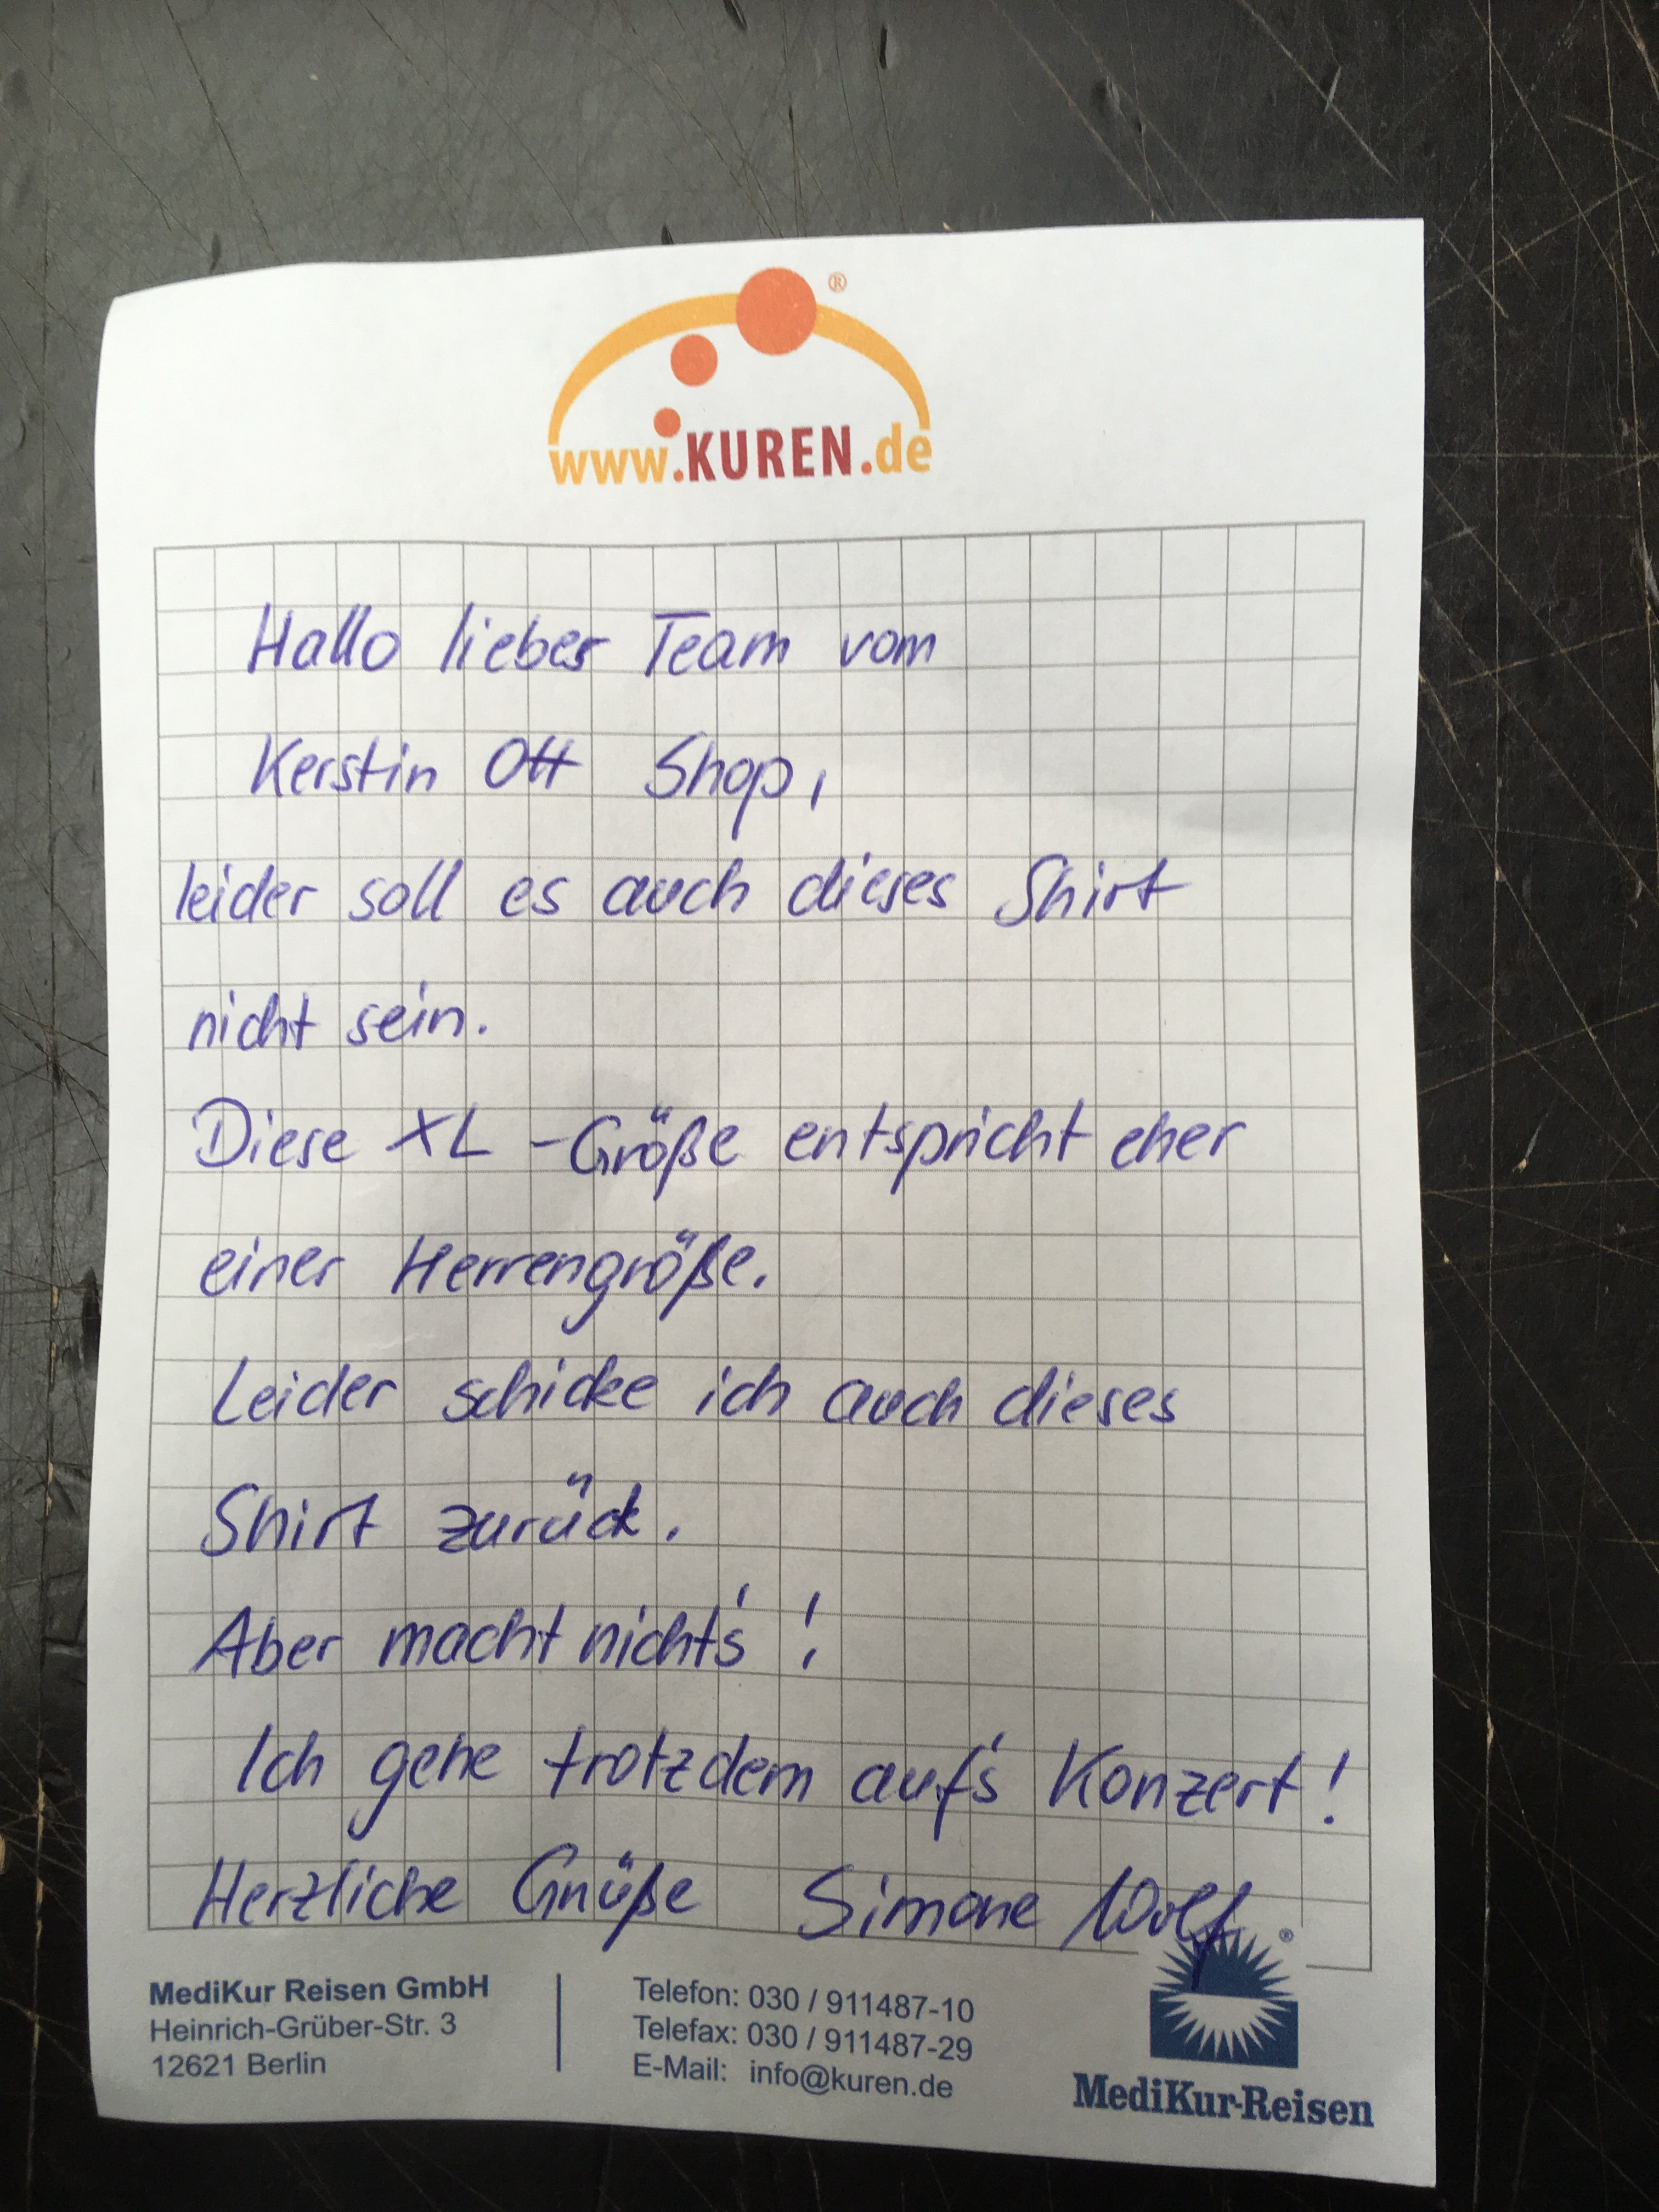 ®
www.KUREN.de
Hallo lieber Team vom
Kerstin Ott Shop,
leider soll es auch dieses Shirt
nicht sein.
Diese XL -Größe entspricht eher
einer Herrengröße.
Leider schicke ich auch dieses
Shirt zurück.
Aber macht nicht's!
Ich gehe trotzdem auf's Konzert!
Herzliche Grüße Simone Wolf
®
MediKur Reisen GmbH
Heinrich-Grüber-Str. 3
12621 Berlin
Telefon: 030 / 911487-10
Telefax: 030 / 911487-29
E-Mail: info@kuren.de
MediKur-Reisen